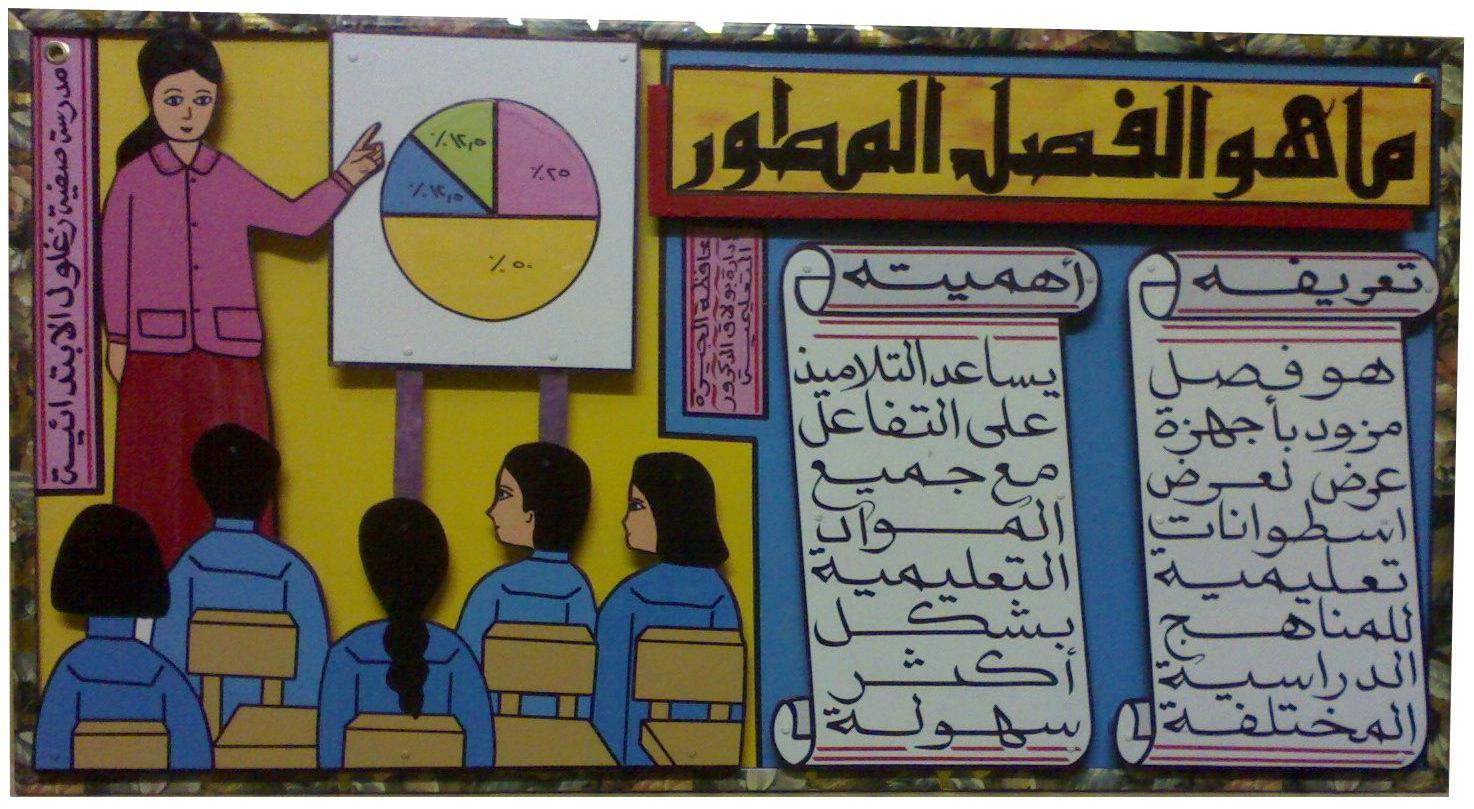 ما هو الفصل المطور
تعريفه
هو فصل
مزود بأجهزة
عرض تعرض
اسطوانات
تعليمية
للمناهج
الدراسية
المختلفة
أهميته
يساعد التلاميذ
على التفاعل
مع جميع
المواد
التعليمية
بشكل
أكثر
سهولة
محافظة الجيزة
إدارة بولاق الدكرور
التعليمية
٢٥٪
١٢,٥٪
١٢,٥٪
٥٠٪
مدرسة صفية زغلول الابتدائية